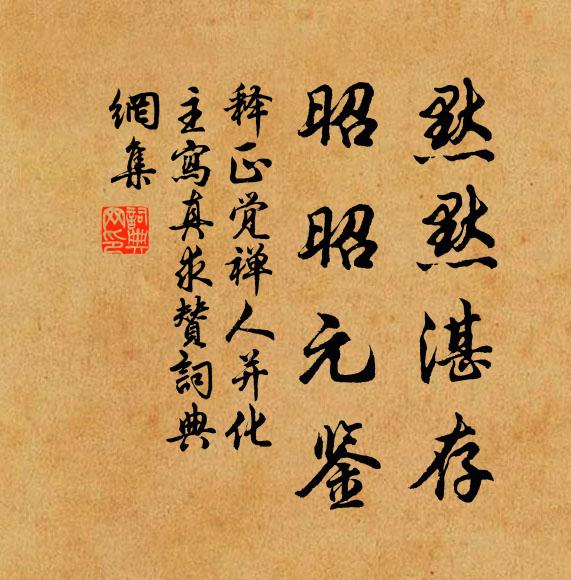 默默湛存
昭昭元鉴
释正觉禅人并化
主寫真求赞詞典
網集
詞典
网印